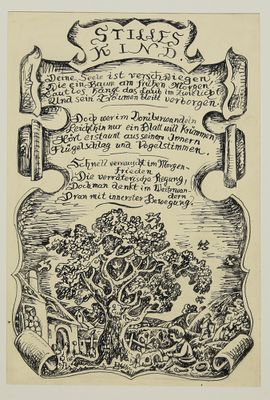 STILLES
KIND.
Deine Seele ist verschwiegen
Wie ein Baum am frühen Morgen
Lautlos hängt das Laub im Zwielicht
Und sein Träumen bleibt verborgen
Doch wer im Vorüberwandeln
Leichthin nur ein Blatt will krümmen,
Hört erstaunt aus seinem Innern
Flügelschlag und Vogelstimmen.
Schnell verrauscht im Morgen-
frieden
Die verräterische Regung,
Doch man denkt im Weiterwan-
dern
Dran mit innerster Bewegung.